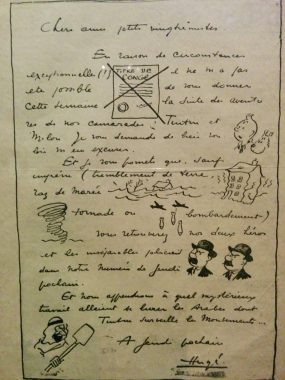 Chers amis petits vingtiémistes
En raison de circonstances
exceptionnelles (!) il ne m'a pas
TITRE DE
CONGÉ
été possible de vous donner
cette semaine la suite des aventu
res de nos camarades Tintin et
Milou. Je vous demande de bien vou
loir m'en excuser.
Et je vous promets que, sauf
imprévu (tremblement de terre,
raz de marée
tornade ou bombardement)
vous retrouverez nos deux héros
et les inséparables policiers
dans notre numéro de jeudi
prochain.
Et nous apprendrons à quel mystérieux
travail allaient se livrer les Arabes dont
Tintin surveille les mouvements...
A jeudi prochain
Hergé